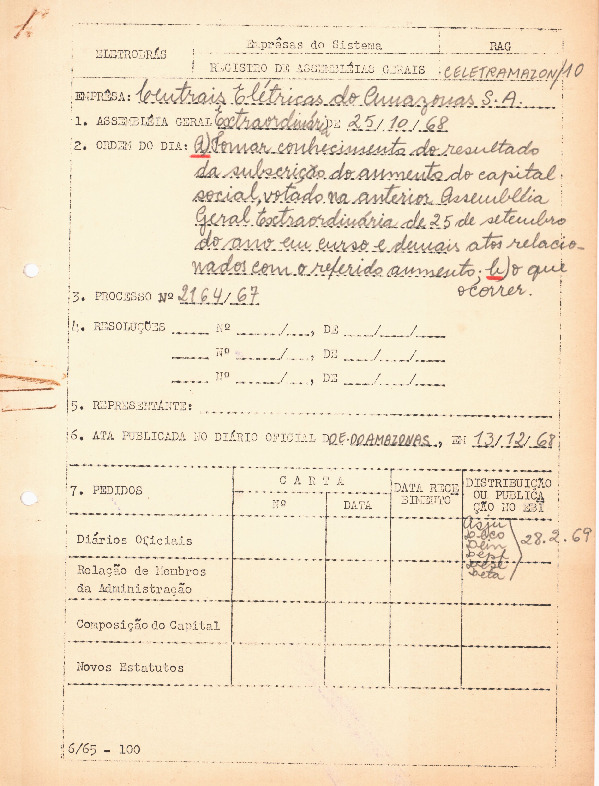 ELETROBRÁS
Emprêsas do Sistema
RAG
REGISTRO DE ASSEMBLÉIAS GERAIS
CELETRAMAZON/10
EMPRÊSA: Centrais Elétricas do Amazonas S.A.
1. ASSEMBLÉIA GERAL Extraordinária DE 25/10/68
2. ORDEM DO DIA: a) Tomar conhecimento do resultado
da subscrição do aumento do capital
social, votado na anterior Assembléia
Geral Extraordinária de 25 de setembro
do ano em curso e demais atos relacio-
nados com o referido aumento; b) o que
ocorrer.
3. PROCESSO Nº 2164/67
4. RESOLUÇÕES _____ Nº _____/___, DE ___/___/___
_____ Nº _____/___, DE ___/___/___
_____ Nº _____/___, DE ___/___/___
5. REPRESENTANTE:
6. ATA PUBLICADA NO DIÁRIO OFICIAL DO E. DO AMAZONAS, EM 13/12/68
7. PEDIDOS
CARTA
Nº
DATA
DATA RECE
BIMENTO
DISTRIBUIÇÃO
OU PUBLICA
ÇÃO NO EBI
Diários Oficiais
Asju
Deco
Dein
Dept
Deta
28.2.69
Relação de Membros
da Administração
Composição do Capital
Novos Estatutos
6/65 - 100